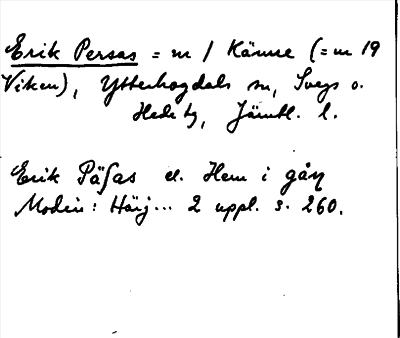 Erik Persas = nr 1 Känne (= nr 19
Viken), Ytterhogdals sn, Svegs o.
Hede tg, Jämtl. l.
Erik Päſas el. Hem i gåɳ
Modin: Härj... 2 uppl. s. 260.